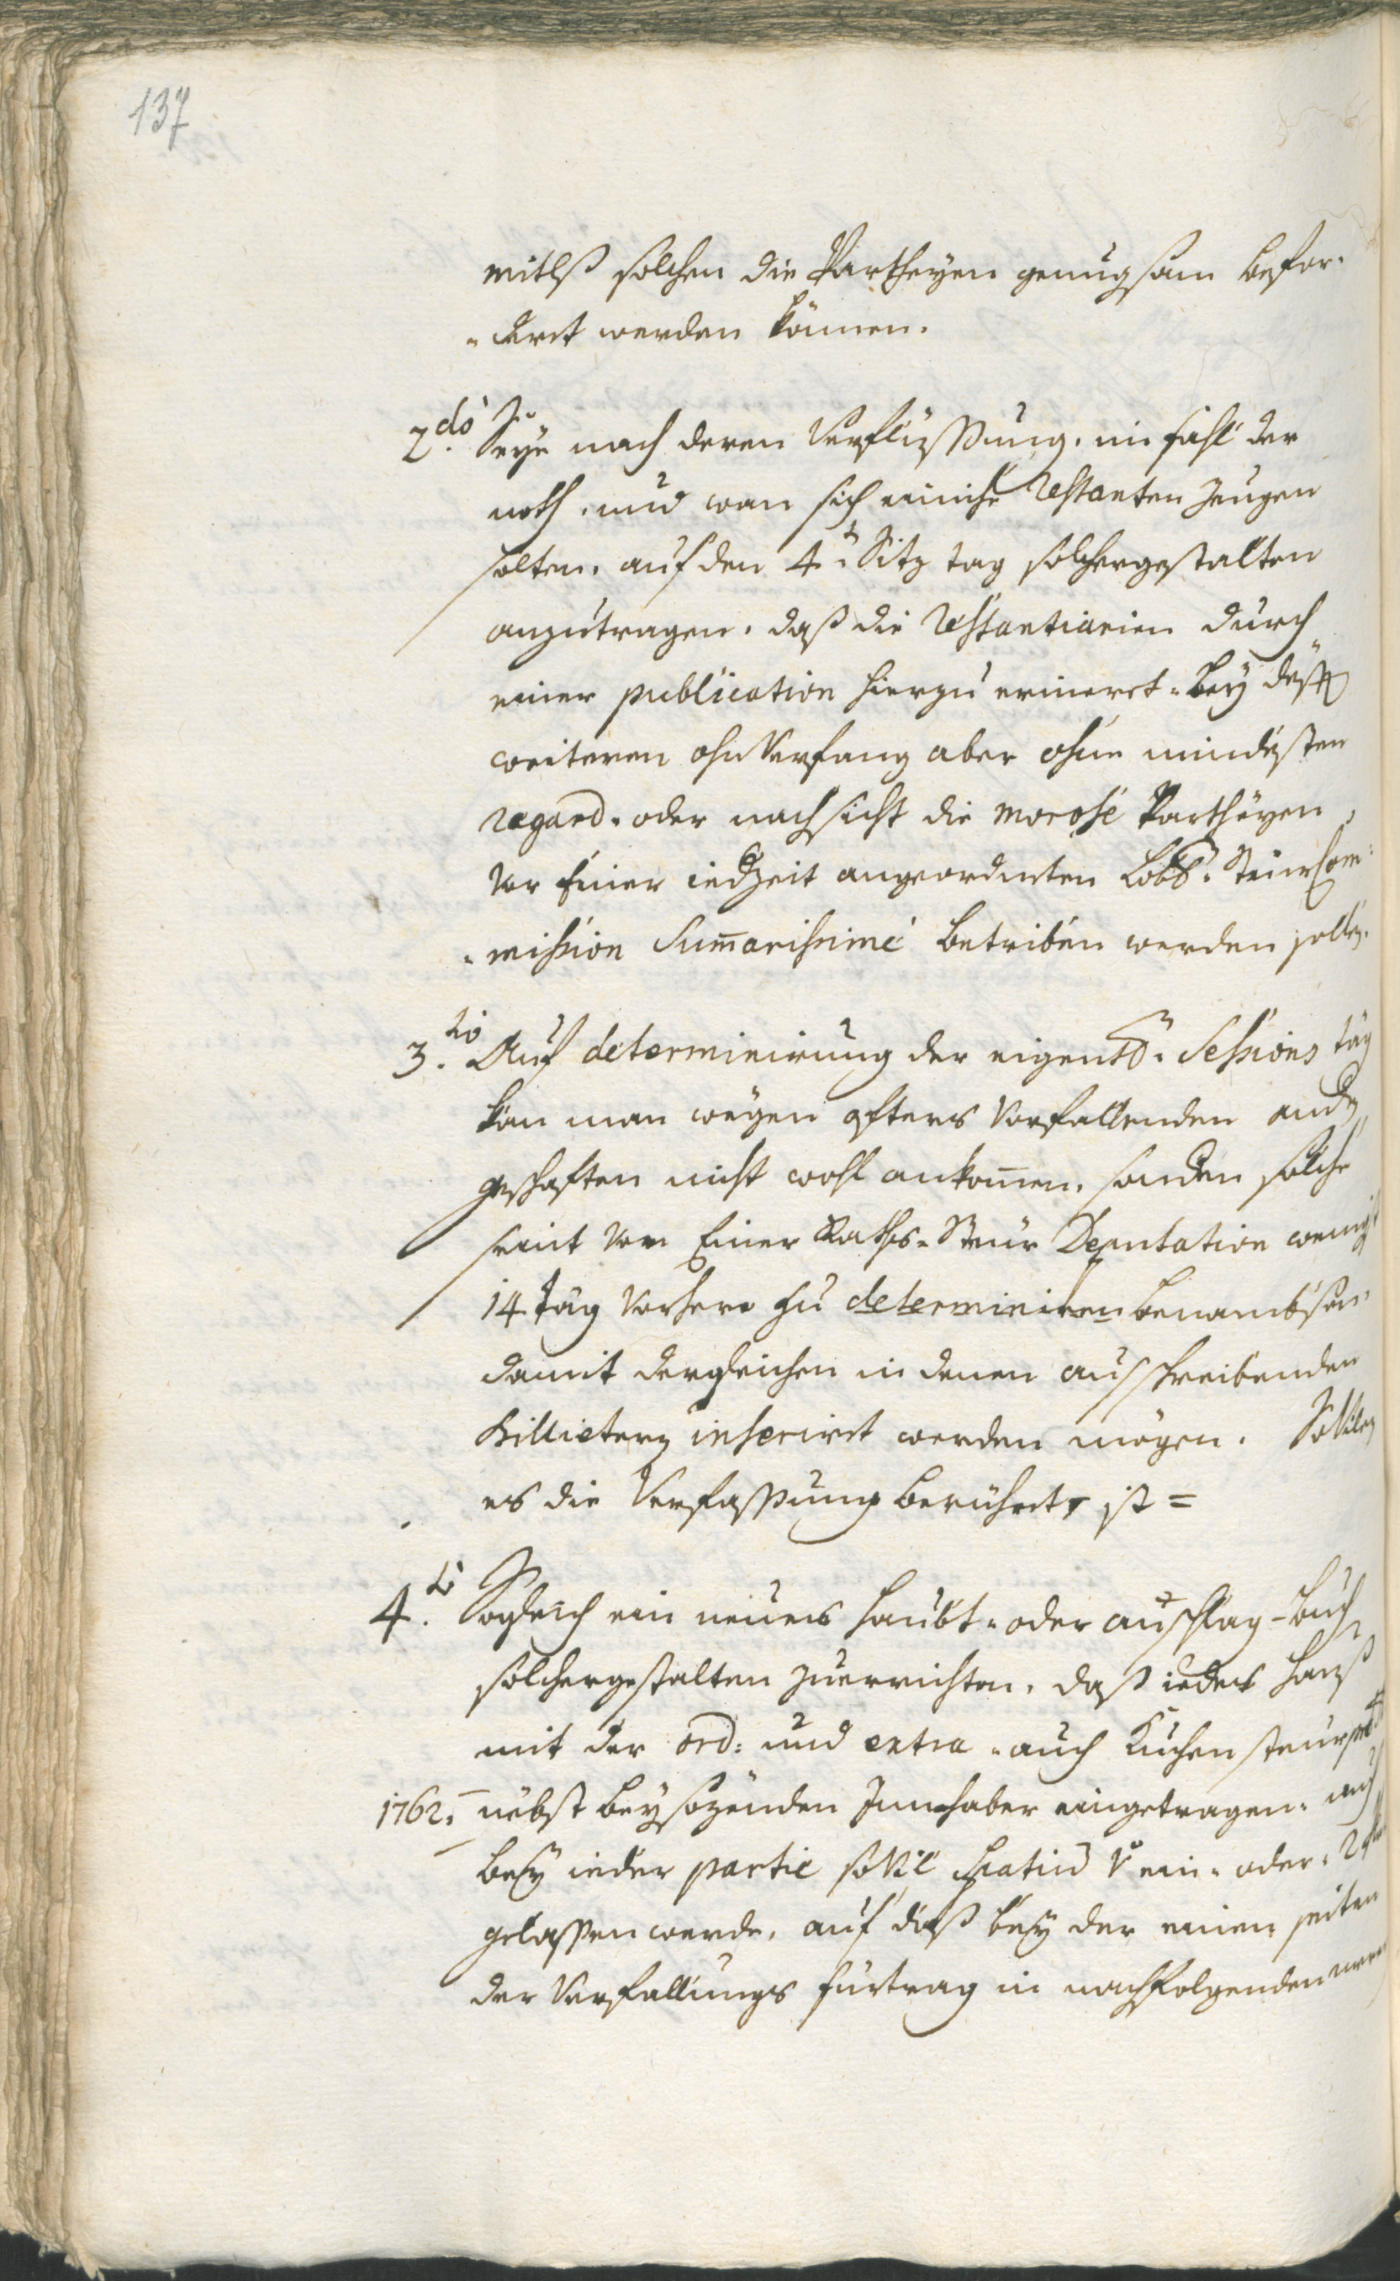 137
mitlß solchen die Partheyen genugsam befor-
-dert werden können.
2.do Seye nach deren Verflüssung, im fahl der
noth, und wan sich einiche Restanten zeugen
solten, auf den 4.t Sitz tag solchergestalten
anzutragen, daß die Restantiarien durch
einer publication hierzu erineret, bey deßen
weiteren ohnverfang aber ohne mindesten
regard, oder nachsicht die morose Partheyen
vor Einer iedzeit angeordneten Lobl. Steur Com-
-mission Summarissime betriben werden sollen.
3.tio Auf determinirung der eigentl. Sessions täg
kan man wegen öfters vorfallenden andern
geschäften nicht wohl ankommen, sondern solche
seint von Einer Raths-Steur Deputation wenigst
14 Täg vorhero zu determiniren benambsen,
damit dergleichen in denen ausschreibenden
Billietern inserirt werden mögen. Sovil
es die Verfassung berühret, ist =
4.to Sogleich ein neues Haubt- oder anschlag-Buch
solchergestalten zuerrichten, daß iedes Hauß
mit der ord: und extra- auch Kuchensteur pro
1762. nebst beysezenden Innhaber eingetragen, und
bey ieder partie sovil Spatium v ein- oder
gelassen werde, auf daß bey der einen seiten
der Verfallungs fürtrag in nachfolgenden